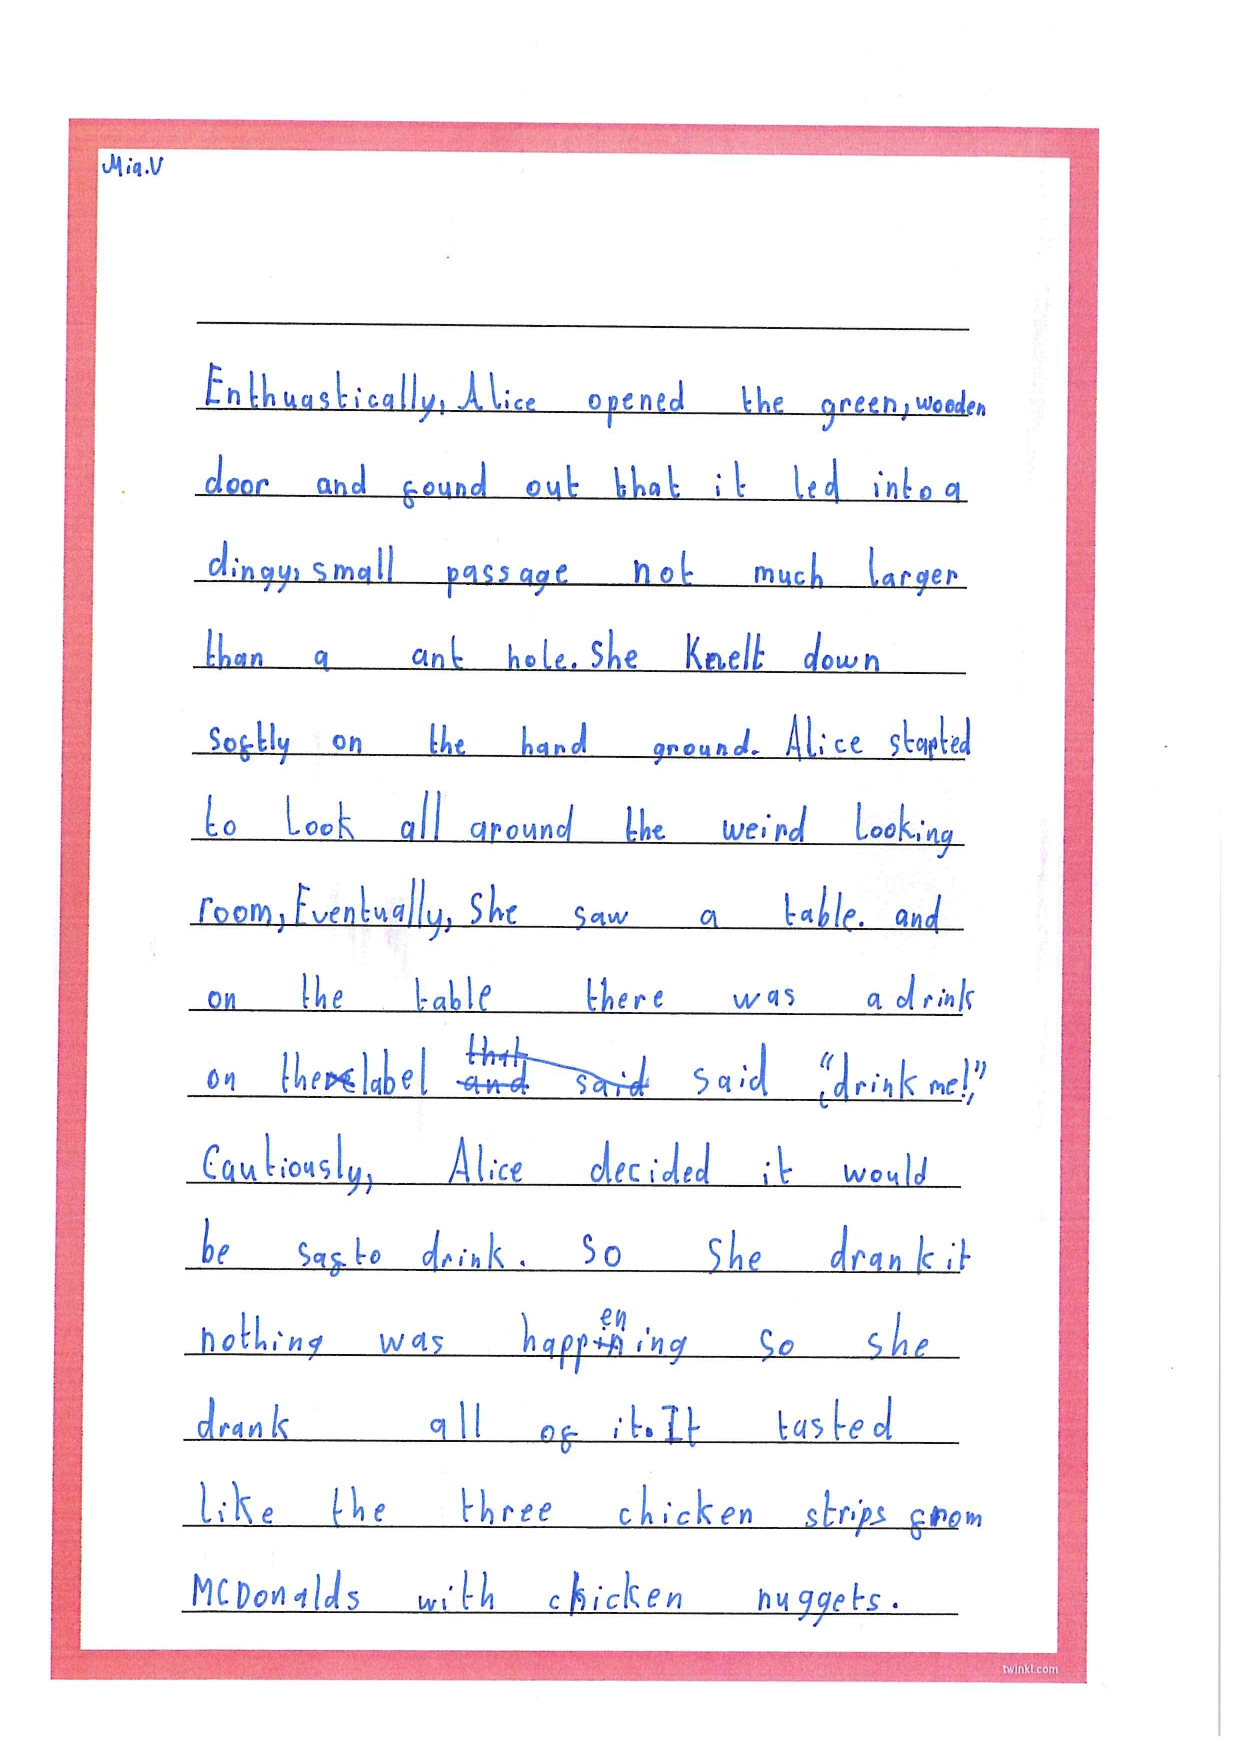 Mia.V
Enthuastically, Alice opened the green, wooden
door and found out that it led into a
dingy, small passage not much larger
than a ant hole. She Knelt down
softly on the hard ground. Alice started
to look all around the weird looking
room, Eventually, She saw a table. and
on the table there was a drink
on the label said "drink me!"
Cautiously, Alice decided it would
be saf to drink. So She drank it
nothing was happening so she
drank all of it. It tasted
like the three chicken strips from
MCDonalds with chicken nuggets.
twinkl.com